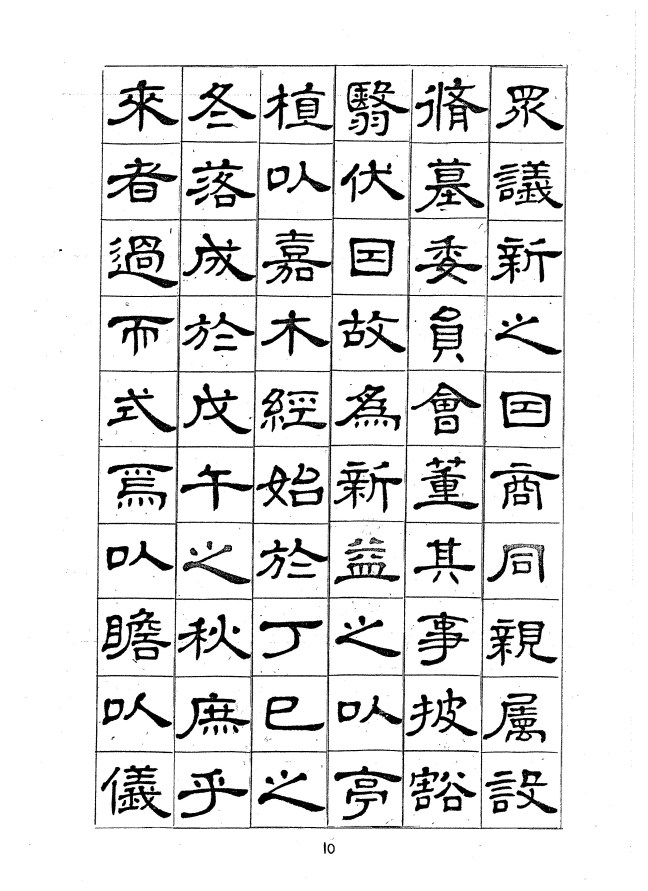 眾議新之囙商同親屬設
脩墓委員會董其事披豁
翳伏囙故爲新益之以亭
植以嘉木經始於丁巳之
冬落成於戊午之秋庶乎
來者過而式焉以瞻以儀
10